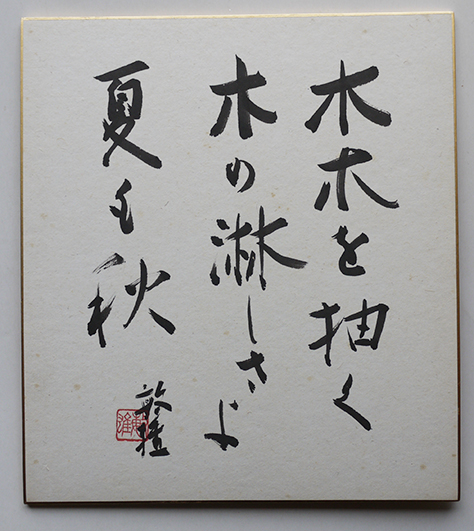 木木を抽く
木の淋しさよ
夏も秋